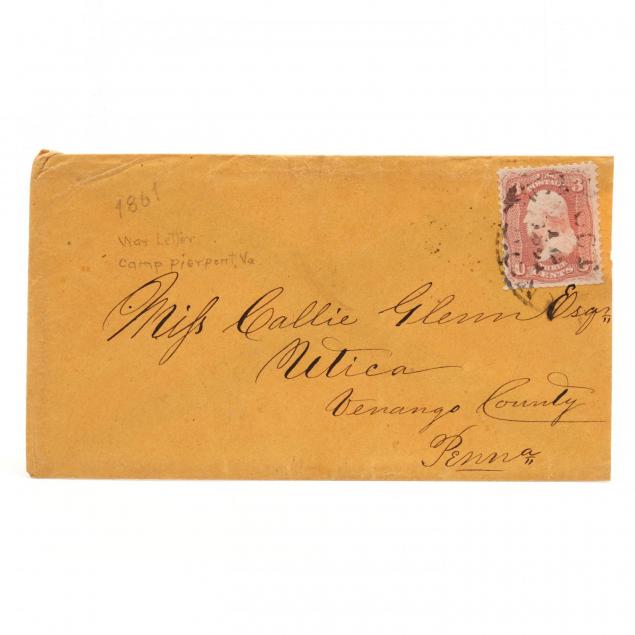 1861
War Letter
Camp Pierpont, Va
3
POSTAGE
U THREE CENTS S
Miss Callie Glenn Esqr
Utica
Venango County
Penna